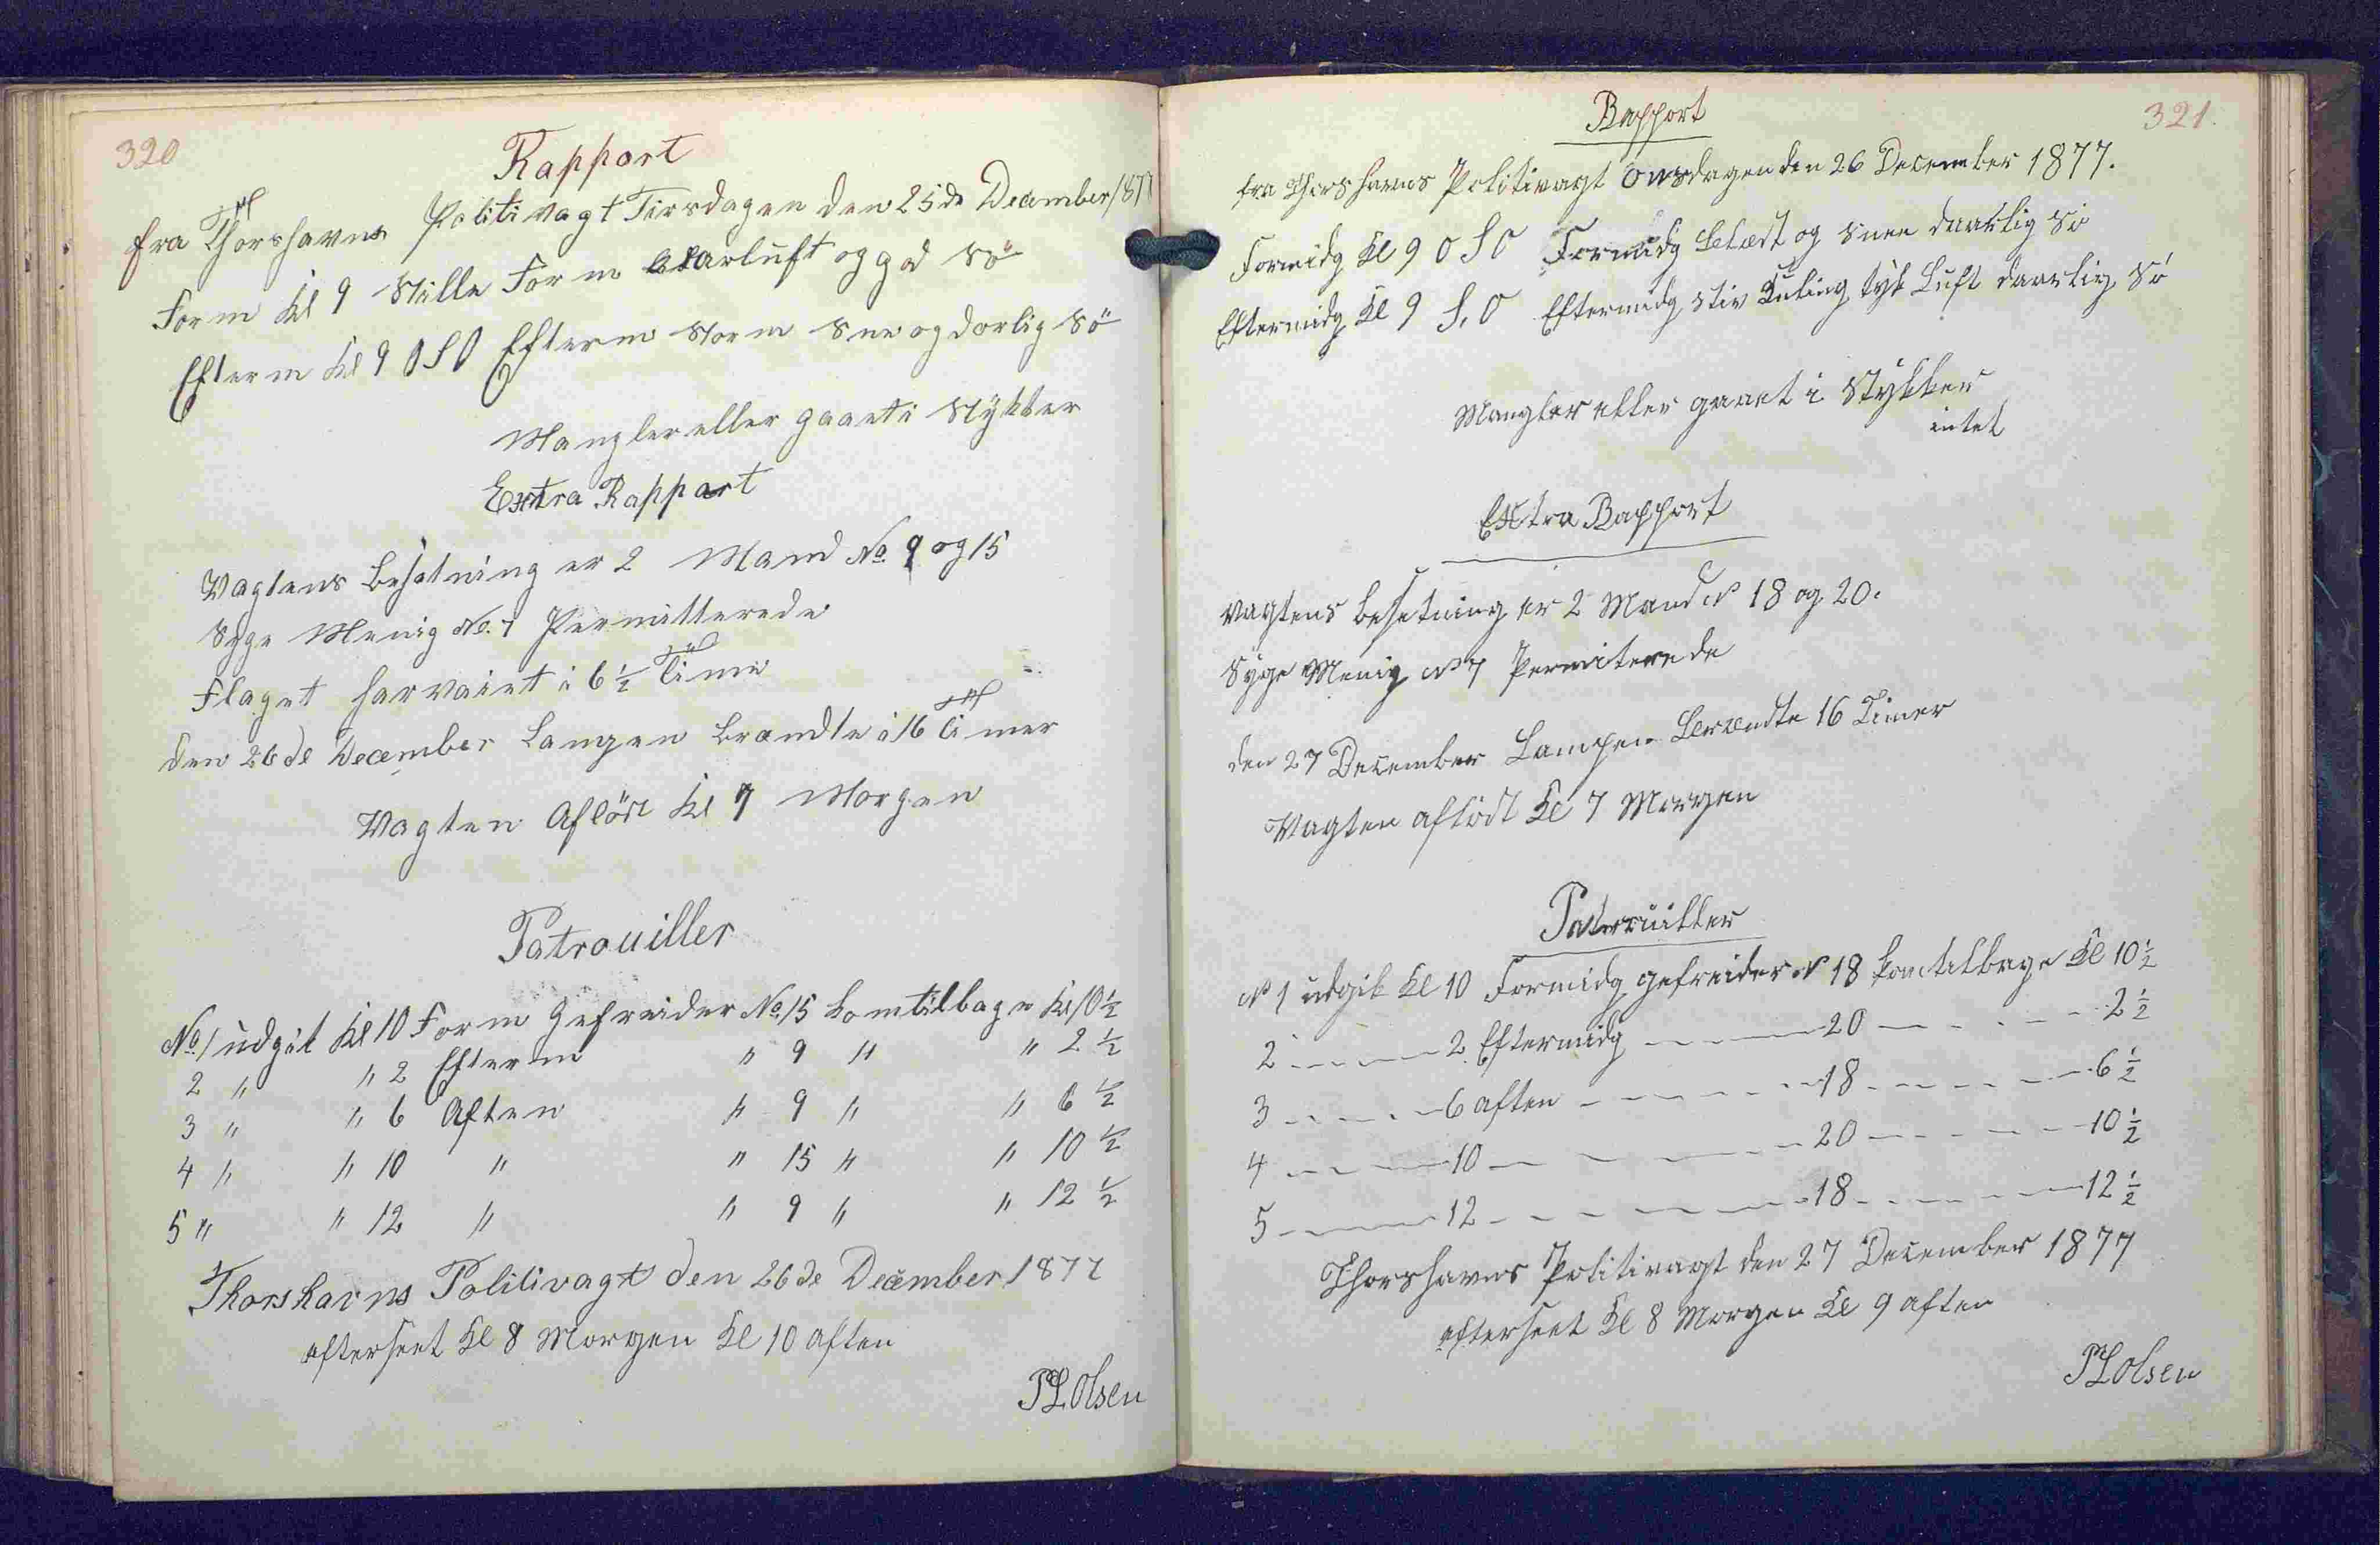 320
Rapport
fra Thorshavns Politivagt Tirsdagen den 25de December 187
Form Kl 9 Stille Form klarluft og god Sö
Efterm Kl 9 OSO Efterm Storm Sne og dorlig Sö
Mangler eller gaaet i Stykker
Extra Rapport
Vagtens Besatning er 2 Mand No. 9 og 15
Syge Menig No. 7 Permitterede
Flaget har vaiet i 6 ½ Time
den 26de December Lampen brændte i 16 Timer
Vagten Aflöst Kl 7 Morgen
Patrouiller
No. 1 udgik Kl 10 Form Gefreider No. 15 komtilbage Kl 10 ½
2 " " 2 Efterm " 9 " " 2 ½
3 " " 6 Aften " 9 " " 6 ½
4 " " 10 " " 15 " " 10 ½
5 " " 12 " " 9 " " 12 ½
Thorshavns Politivagt den 26de December 1877
efterseet Kl 8 Morgen Kl 10 aften
PL Olsen
321.
Rapport
fra Thorshavns Politivagt Onsdagen den 26 December 1877.
Formidg Kl 9 O S O Formidg og Snee daarlig Sö
Eftermidg Kl 9 S. O Eftermidg Stiv Kuling tyk Luft daarlig Sö
Mangler eller gaaet i Stykker
intet
Extra Rapport
Vagtens Besetning er 2 Mand N 18 og 20.
Syge Menig N 7 Permiterede
den 27 December Lampen Brændte 16 Timer
Vagten aflöst Kl 7 Morgen
Patrouiller
N 1 udgik Kl 10 Formidg gefreider N 18 komtilbage Kl 10 ½
2 - - - - 2 Eftermidg - - - - 20 - - - - - 2 ½
3 - - - - 6 aften - - - - - 18 - - - - - 6 ½
4 - - - - 10 - - - - - 20 - - - - - 10 ½
5 - - - - 12 - - - - - 18 - - - - - 12 ½
Thorshavns Politivagt den 27 December 1877
efterseet Kl 8 Morgen Kl 9 aften
PL Olsen